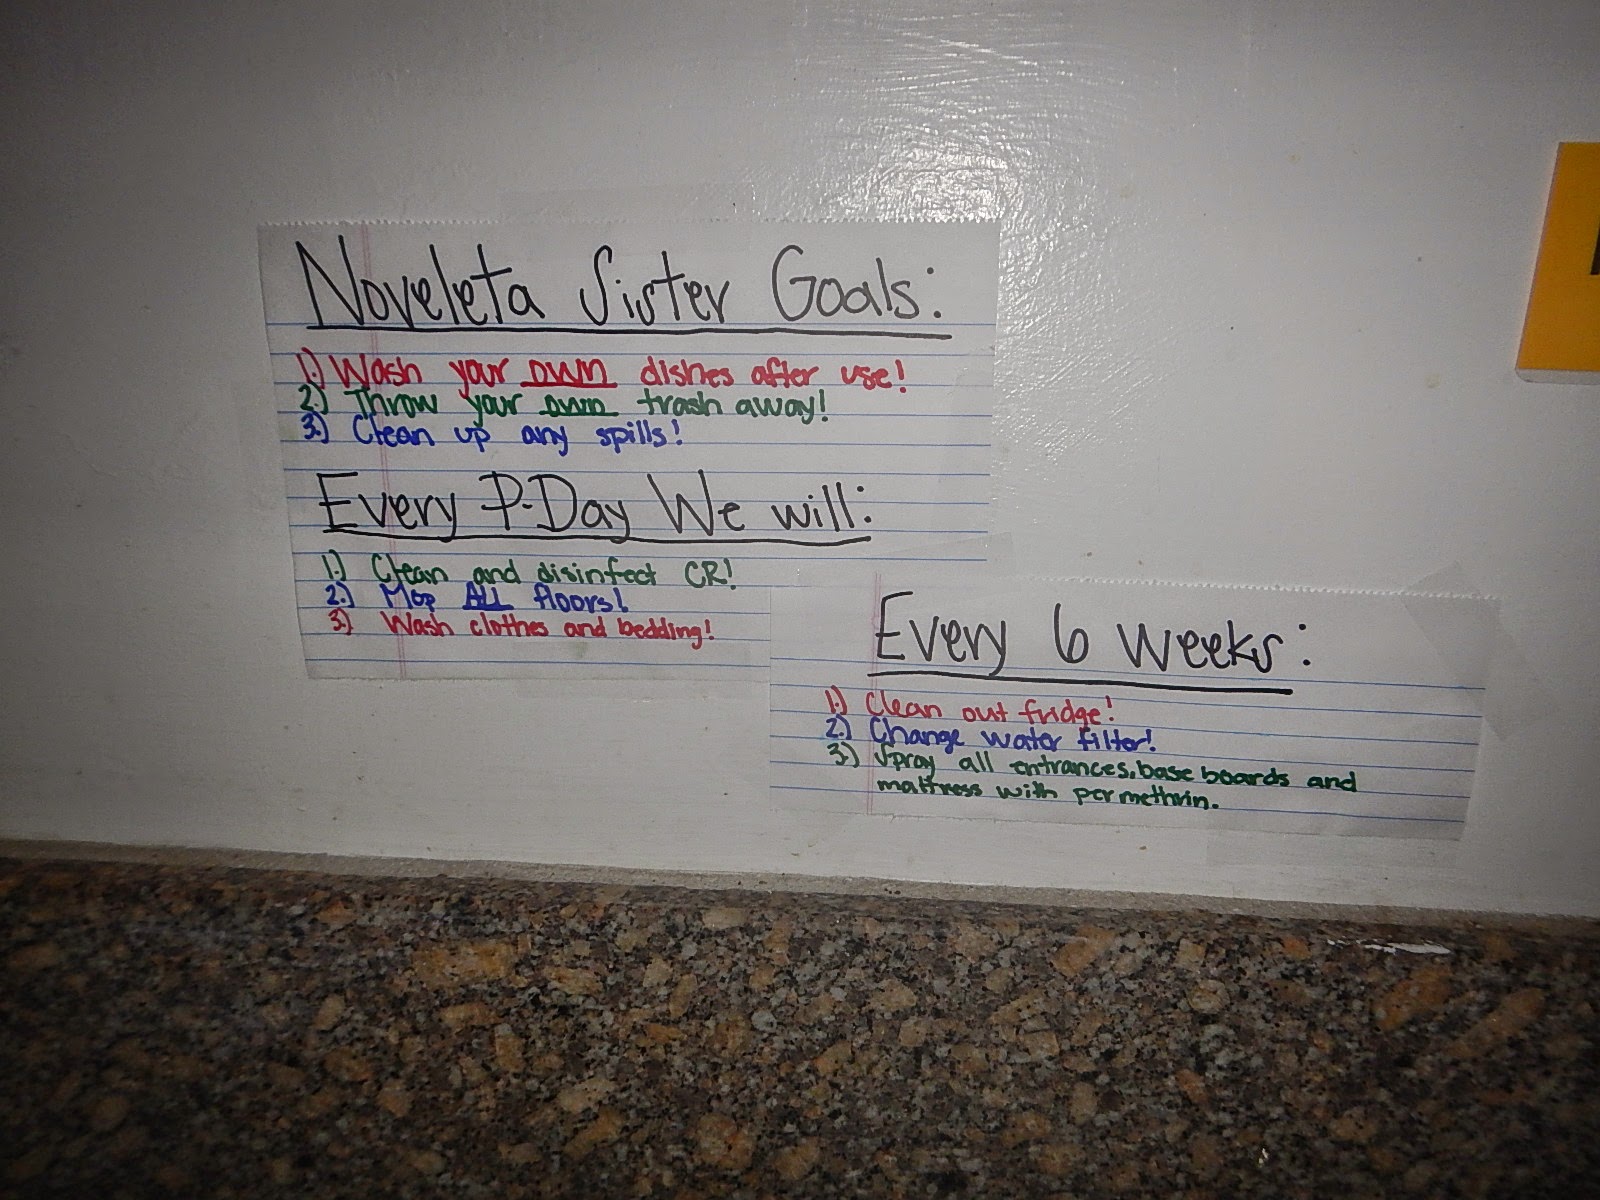 Noveleta Sister Goals:
1.) Wash your own dishes after use!
2.) Throw your own trash away!
3.) Clean up any spills!
Every P-Day We will:
1.) Clean and disinfect CR!
2.) Mop ALL floors!
3.) Wash clothes and bedding!
Every 6 weeks:
1.) Clean out fridge!
2.) Change water filter!
3.) Spray all entrances, base boards and
mattress with permethrin.